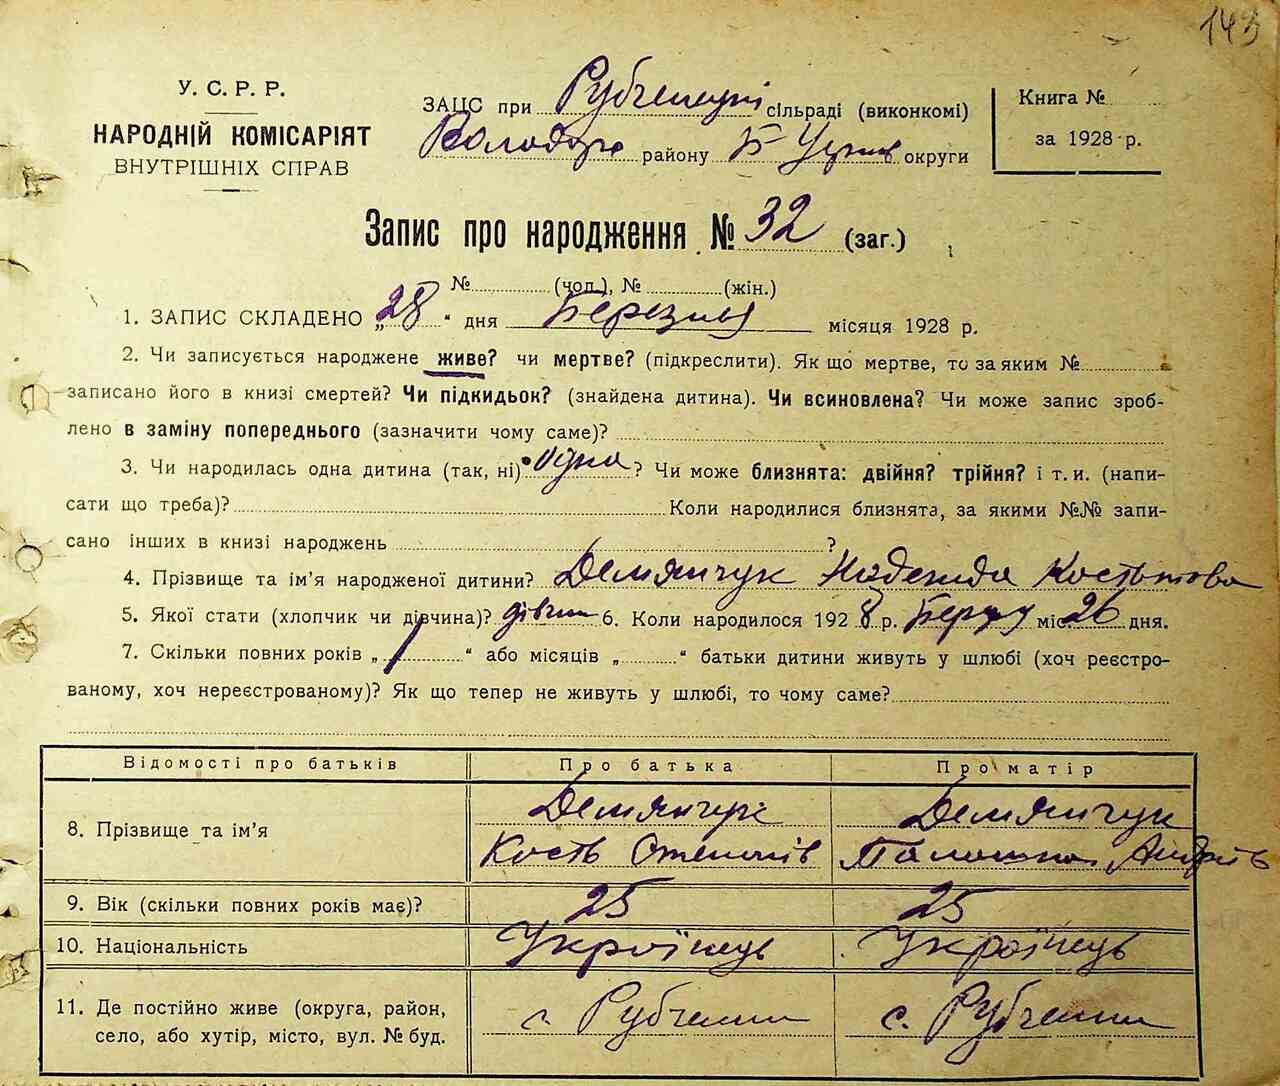 143
У. С. Р. Р.
НАРОДНІЙ КОМІСАРІЯТ
ВНУТРІШНІХ СПРАВ
ЗАЦС при сільраді (виконкомі)
Володар. району Б-Церків округи
Книга №
за 1928 р.
Запис про народження № 32 (заг.)
№ (чол.), № (жін.)
1. ЗАПИС СКЛАДЕНО „28“ дня Березня місяця 1928 р.
2. Чи записується народжене живе? чи мертве? (підкреслити). Як що мертве, то за яким №
записано його в книзі смертей? Чи підкидьок? (знайдена дитина). Чи всиновлена? Чи може запис зроб-
лено в заміну попереднього (зазначити чому саме)?
3. Чи народилась одна дитина (так, ні) одна? Чи може близнята: двійня? трійня? і т. и. (напи-
сати що треба)? Коли народилися близнята, за якими №№ запи-
сано інших в книзі народжень ?
4. Прізвище та ім'я народженої дитини? Демянчук Надежда Костьтова
5. Якої стати (хлопчик чи дівчина)? дівчин 6. Коли народилося 1928 р. міс. 26 дня.
7. Скільки повних років „1“ або місяців „ “ батьки дитини живуть у шлюбі (хоч реєстро-
ваному, хоч нереєстрованому)? Як що тепер не живуть у шлюбі, то чому саме?
Відомості про батьків Про батька Про матір
8. Прізвище та ім'я Демянчук Кость Демянчук Андріїв
9. Вік (скільки повних років має)? 25 25
10. Національність Українець Українець
11. Де постійно живе (округа, район, с. Рубченки с. Рубченки
село, або хутір, місто, вул. № буд.